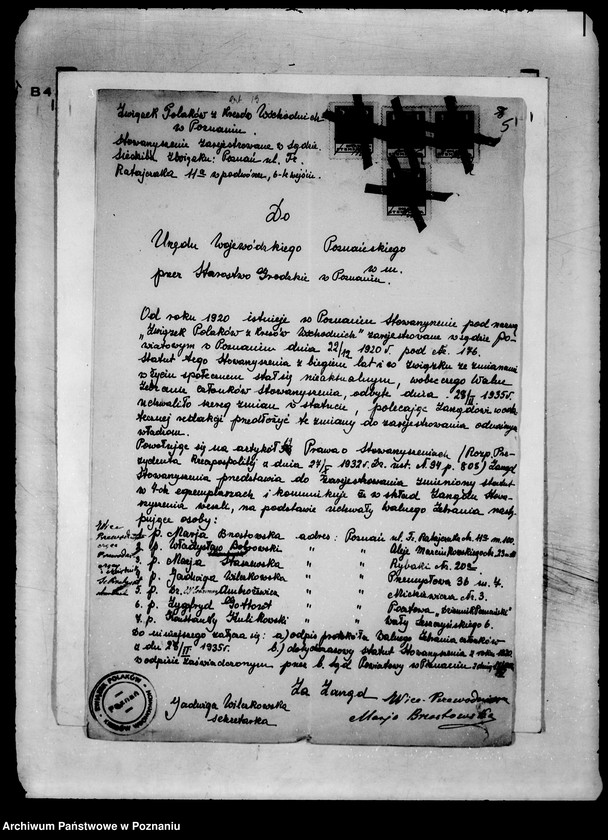 B4
5
Związek Polaków z Kresów Wschodnich
w Poznaniu.
Stowarzyszenie zarejestrowane w sądzie.
Siedziba Związku: Poznań ul. Fr.
Ratajczaka 11a w podwórzu, 6-te wejście.
Do
Urzędu Wojewódzkiego Poznańskiego
w m.
przez Starostwo Grodzkie w Poznaniu.
Od roku 1920 istnieje w Poznaniu Stowarzyszenie pod nazwą
"Związek Polaków z Kresów Wschodnich" zarejestrowane w sądzie Po-
wiatowym w Poznaniu dnia 22/12 1920 r. pod Nr. 176.
Statut tego Stowarzyszenia z biegiem lat i w związku ze zmianami
w życiu społecznem stał się nieaktualnym, wobec czego Walne
Zebranie członków Stowarzyszenia, odbyte dnia 28/II 1935 r.
uchwaliło szereg zmian w statucie, polecając Zarządowi w osta-
tecznej redakcji przedłożyć te zmiany do zarejestrowania odnośnym
władzom.
Powołując się na artykuł Prawa o Stowarzyszeniach /Rozp. Pre-
zydenta Rzeczpospolitej z dnia 27/X 1932 r. Dz. Ust. Nr. 94 p. 808/ Zarząd
Stowarzyszenia przedstawia do zarejestrowania zmieniony statut
w 4-ch egzemplarzach i komunikuje że w skład Zarządu Stowa-
rzyszenia weszli, na podstawie uchwały Walnego Zebrania nastę-
pujące osoby:
Wice
p. Marja Brzostowska adres: Poznań ul. Fr. Ratajczaka Nr. 11a m. 100.
2. p. Władysław " " Aleje Marcinkowskiego
3. p. Marja Staszewska " " Rybaki No. 20a
4. p. Jadwiga Wilenkowska " " Przemysłowa 36 m. 4.
5. p. Dr. Ambrożewicz " " Mickiewicza Nr. 3.
6. p. Zygfryd " " Pocztowa "Dziennik Poznański"
7. p. Konstanty Kulikowski " " Wały Leszczyńskiego 6.
Do niniejszego załącza się: a) odpis protokółu Walnego Zebrania członków
z dn. 28/II 1935 r. b) dotychczasowy statut Stowarzyszenia z roku 1920.
w odpisie zaświadczonym przez b. Sąd Powiatowy w Poznaniu
Za Zarząd
Wice-Przewodnicząca
Jadwiga Wilenkowska
Marja Brzostowska
sekretarka
ZWIĄZEK POLAKÓW Z KRESÓW WSCHODNICH
POZNAŃ
Archiwum Państwowe w Poznaniu